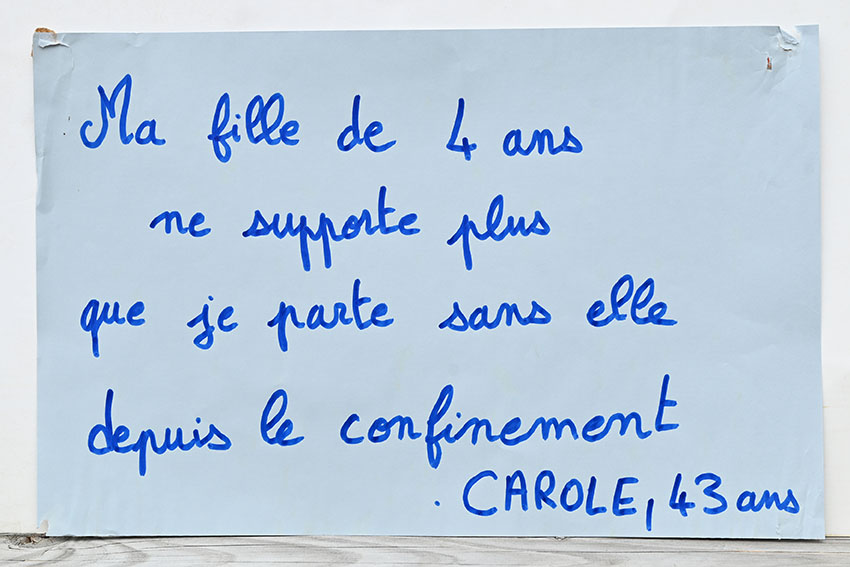 Ma fille de 4 ans
ne supporte plus
que je parte sans elle
depuis le confinement
. CAROLE, 43 ans